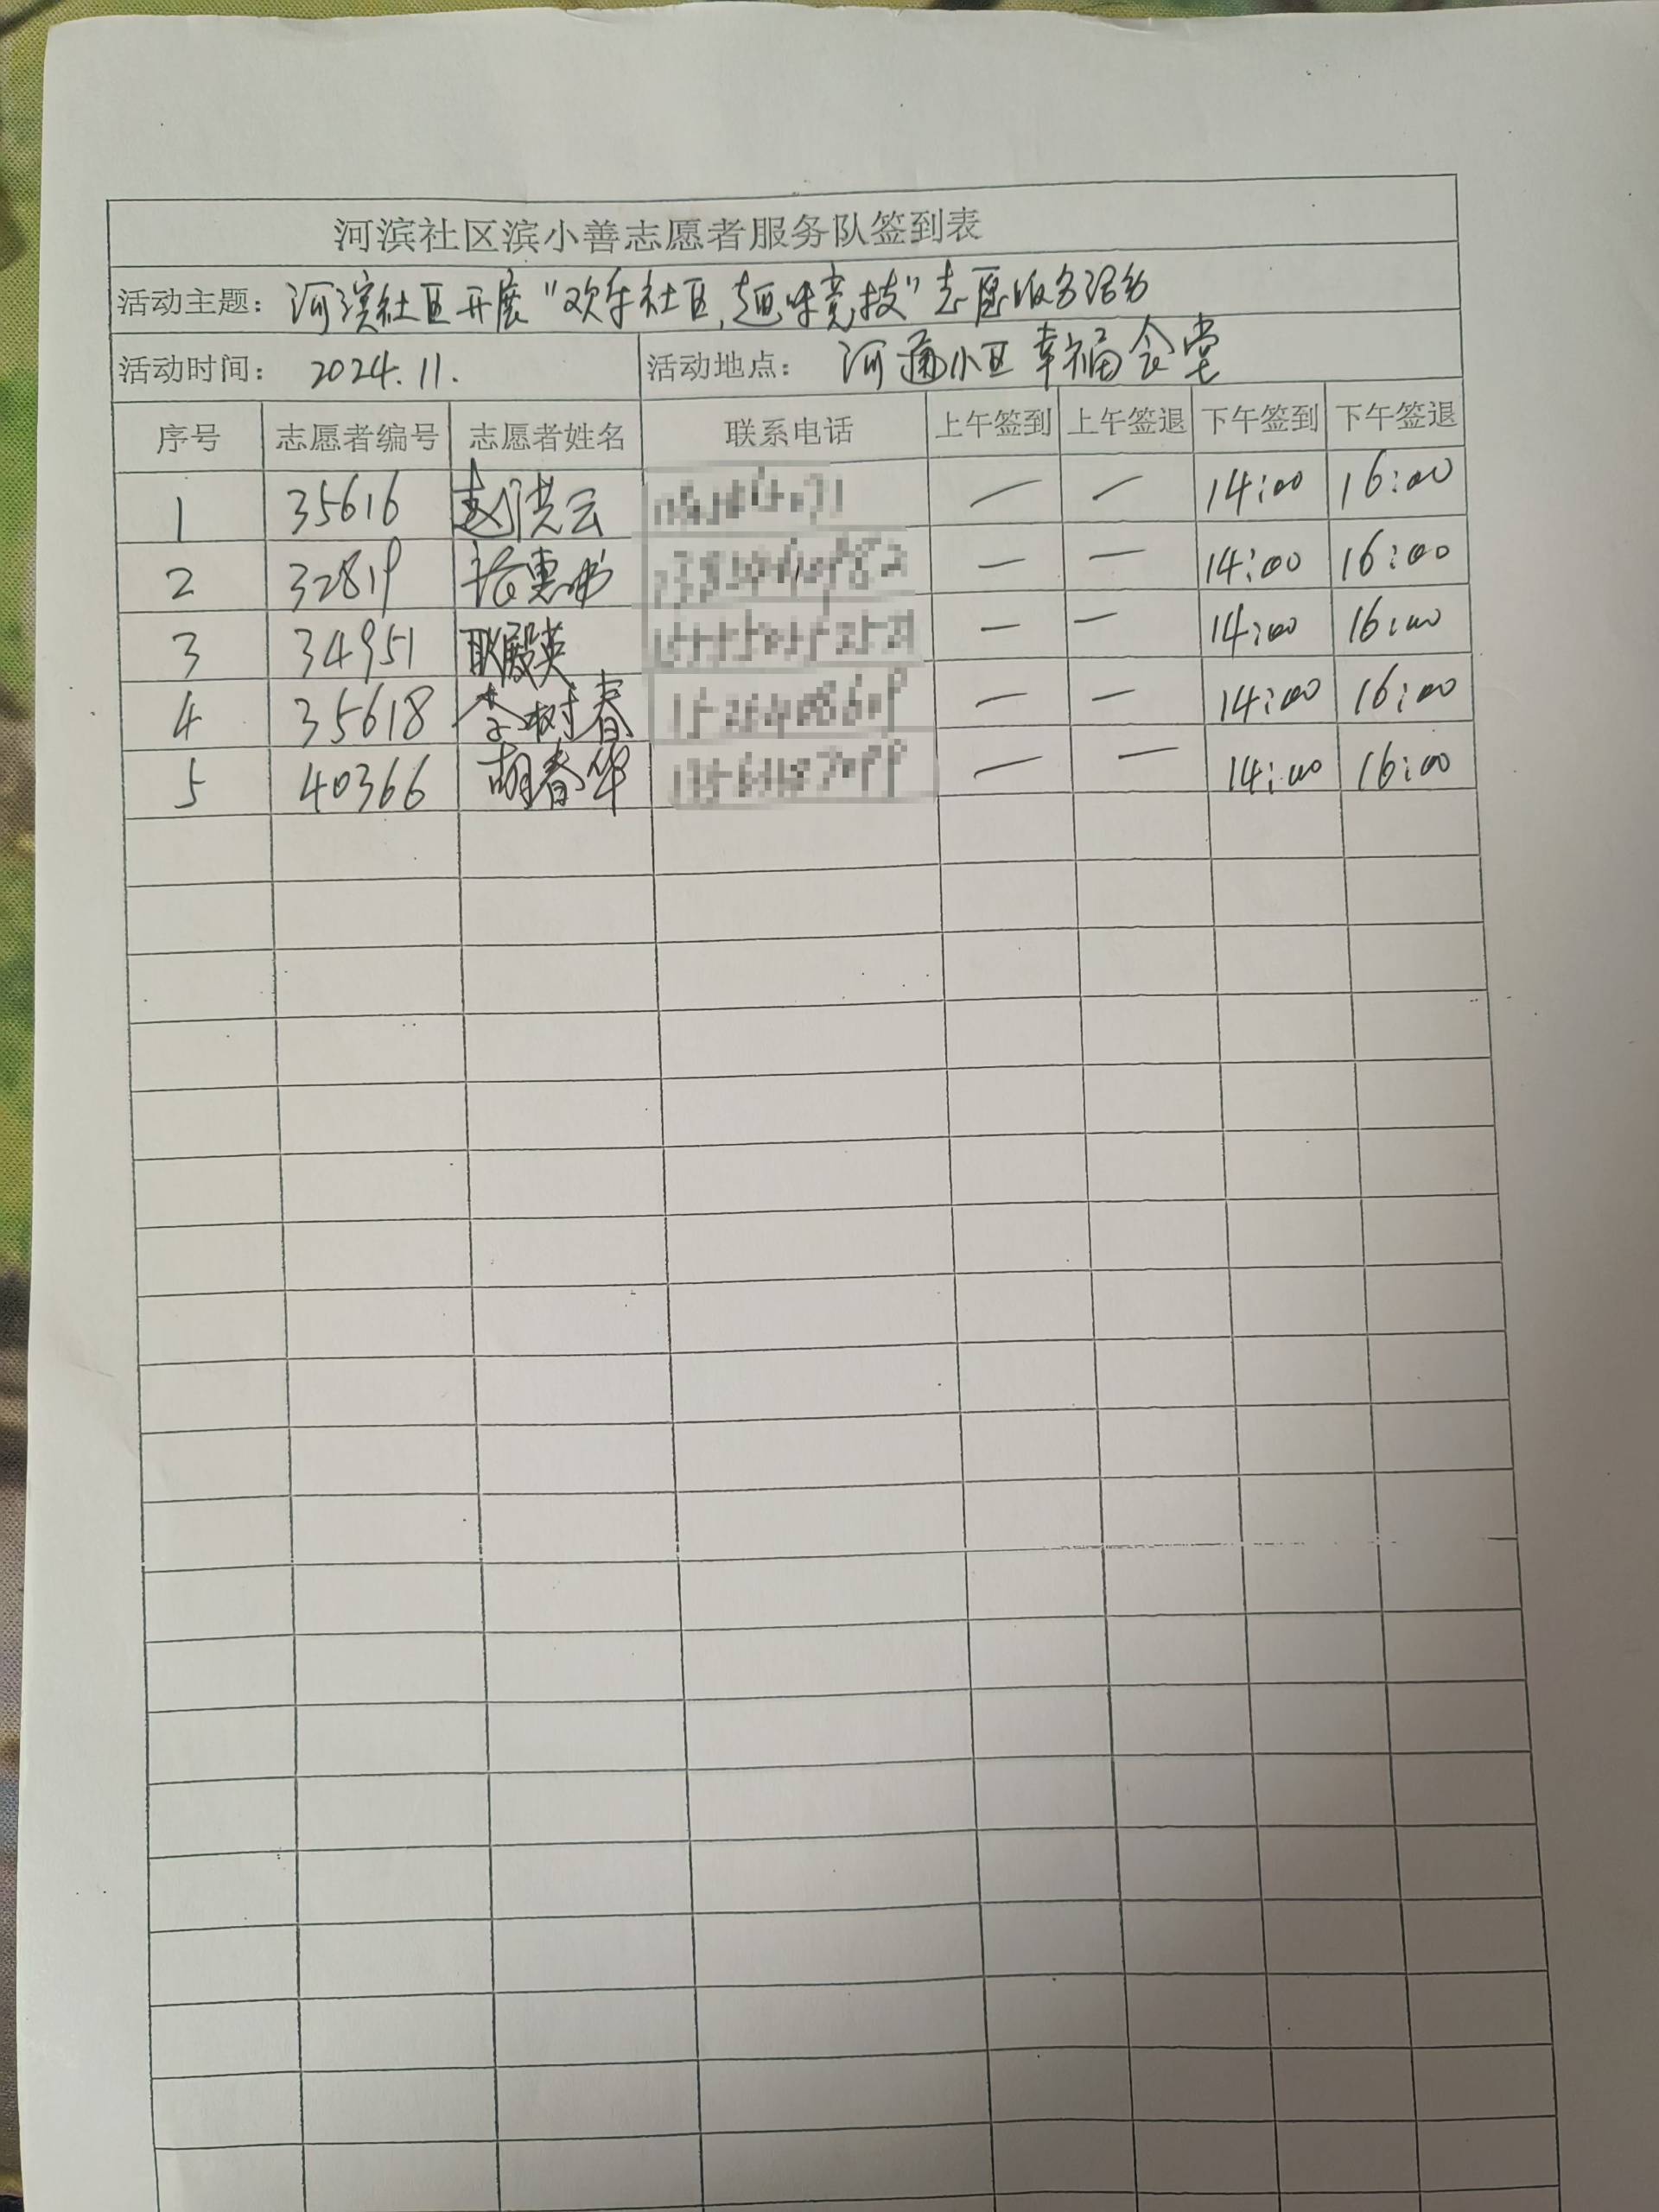 河滨社区滨小善志愿者服务队签到表
活动主题： 河滨社区开展“欢乐社区，趣味竞技”志愿服务活动
活动时间： 2024.11. 活动地点： 河通小区幸福食堂
序号 志愿者编号 志愿者姓名 联系电话 上午签到 上午签退 下午签到 下午签退
1 35616 赵洪云 — — 14:00 16:00
2 32819 — — 14:00 16:00
3 34951 耿殿英 — — 14:00 16:00
4 35618 李树春 — — 14:00 16:00
5 40366 胡春华 — — 14:00 16:00